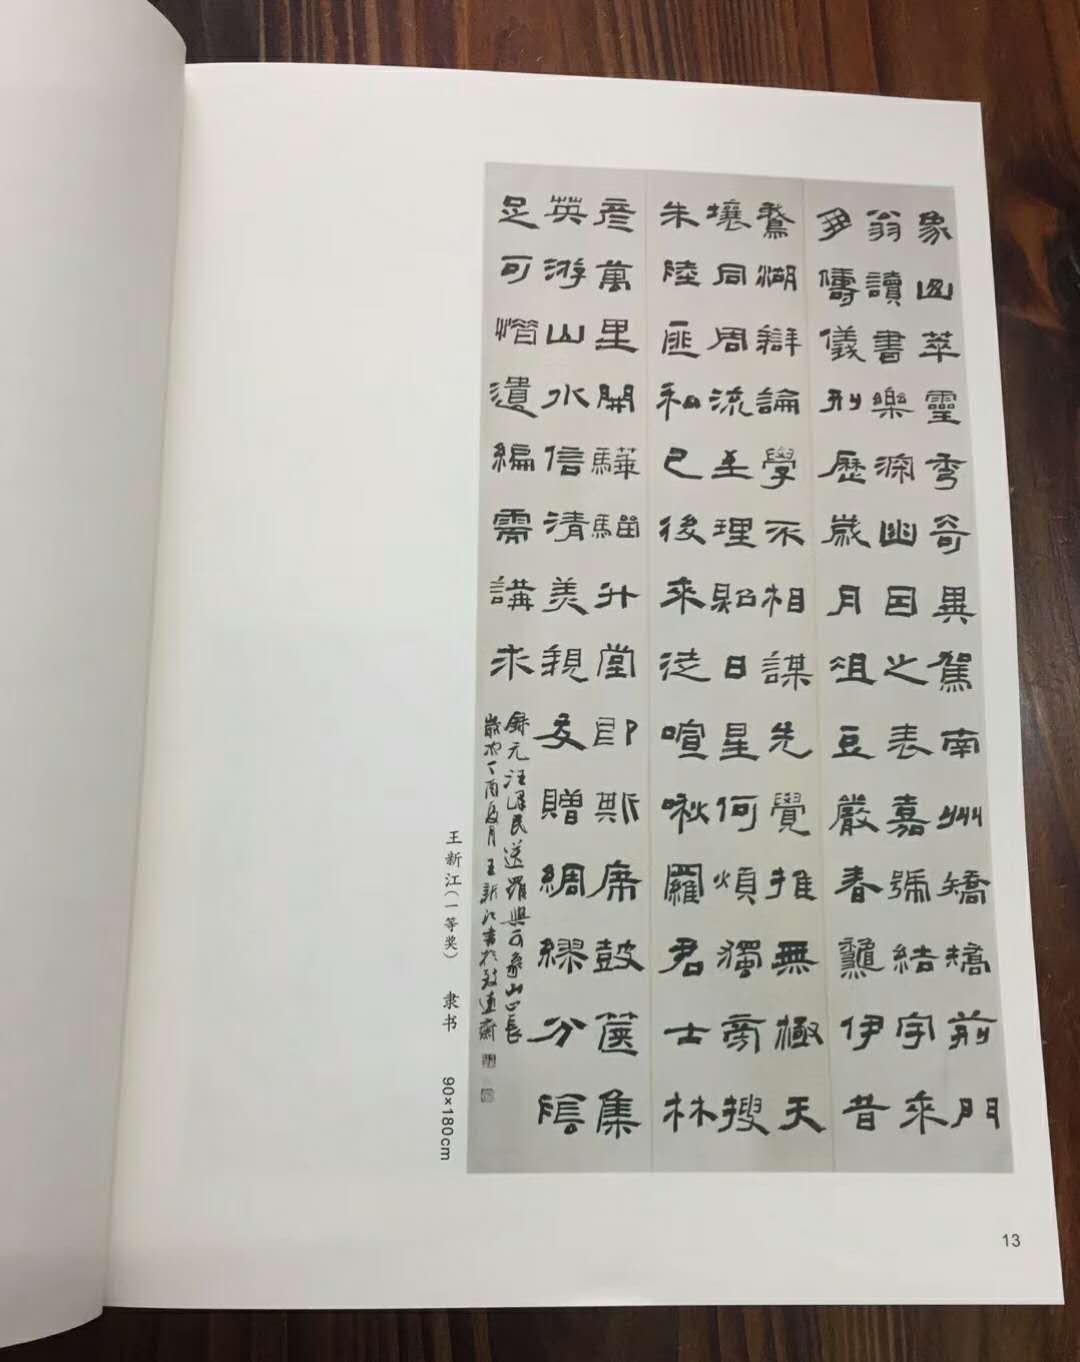 象山萃靈秀奇異駕南州矯矯前門
翁讀書樂深幽因之表嘉號結宇來
多儔儀刑歷歲月俎豆嚴春龝伊昔
鵞湖辯論學不相謀先覺推無極天
壤同周流至理昭日星何煩獨旁搜
朱陸匪和已後來徒喧啾羅君士林
彥萬里開驊騮升堂即斯席鼓篋集
英游山水信清美親友贈綢繆分陰
足可惜遺編需講求
錄元汪澤民送羅與可象山山長
歲次丁酉夏月王新江書於致遠齋
王新江（一等奖） 隶书 90×180cm
13